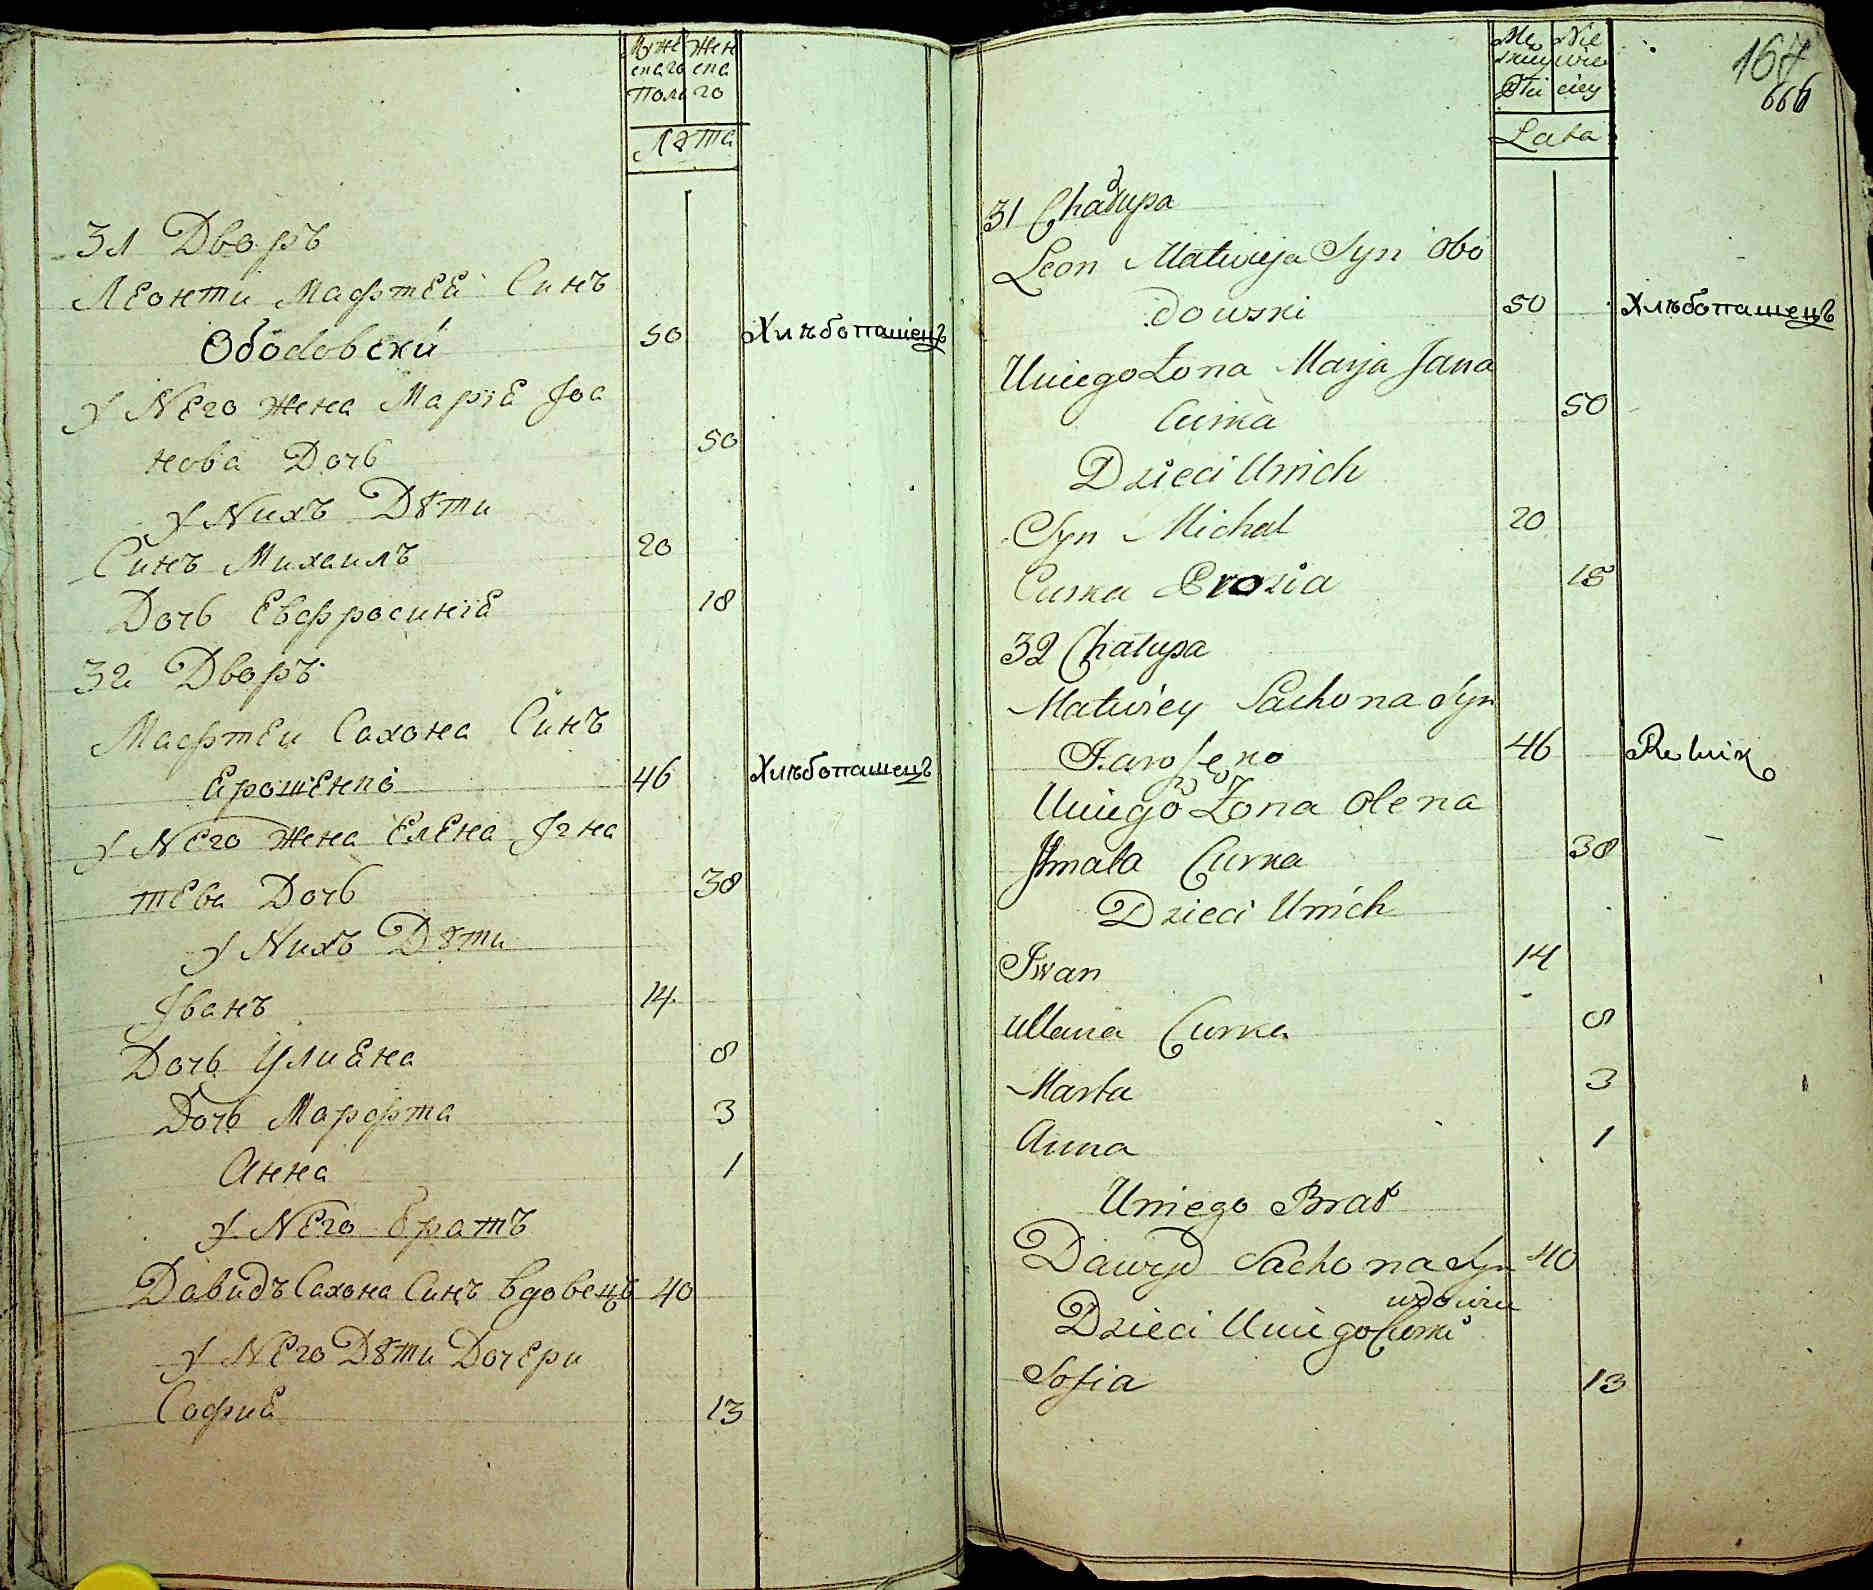 Муже Жен
скаго ска
Пола го
Лѣта
31 Дворъ
Леонти Мафтей Синъ
Ободовскй 50 Хлѣбопашецъ
у Него жена Маріе Іоа
нова Дочь 50
у Нихъ Дѣти
Синъ Михаилъ 20
Дочь Евфросиніе 18
32 Дворъ
Мафтеи Сахона Синъ
Ерошенко 46 Хлѣбопашецъ
у Него жена Елена Ігна
тева Дочь 38
у Нихъ Дѣти
Іванъ 14
Дочь Улиена 8
Дочь Марфта 3
Анна 1
у Него Братъ
Давидъ Сахона Синъ вдовецъ 40
у Него Дѣти Дочери
Софие 13
167
666
Lata
31 Chałupa
Leon Matwieja Syn Obo
dowski 50 Хлѣбопашецъ
Uniego Żona Marja Jana
Curka 50
Dzieci Unich
Syn Michał 20
Curka Prozia 18
32 Chałupa
Matwiey Sachona Syn
Jaroszenko 46 Rolnik
Uniego Żona Olena
Ihnata Curka 38
Dzieci Unich
Iwan 14
Ullana Curka 8
Marta 3
Anna 1
Uniego Brat
Dawyd Sachona Syn 40
wdowiec
Dzieci Uniego Curki
Sofia 13